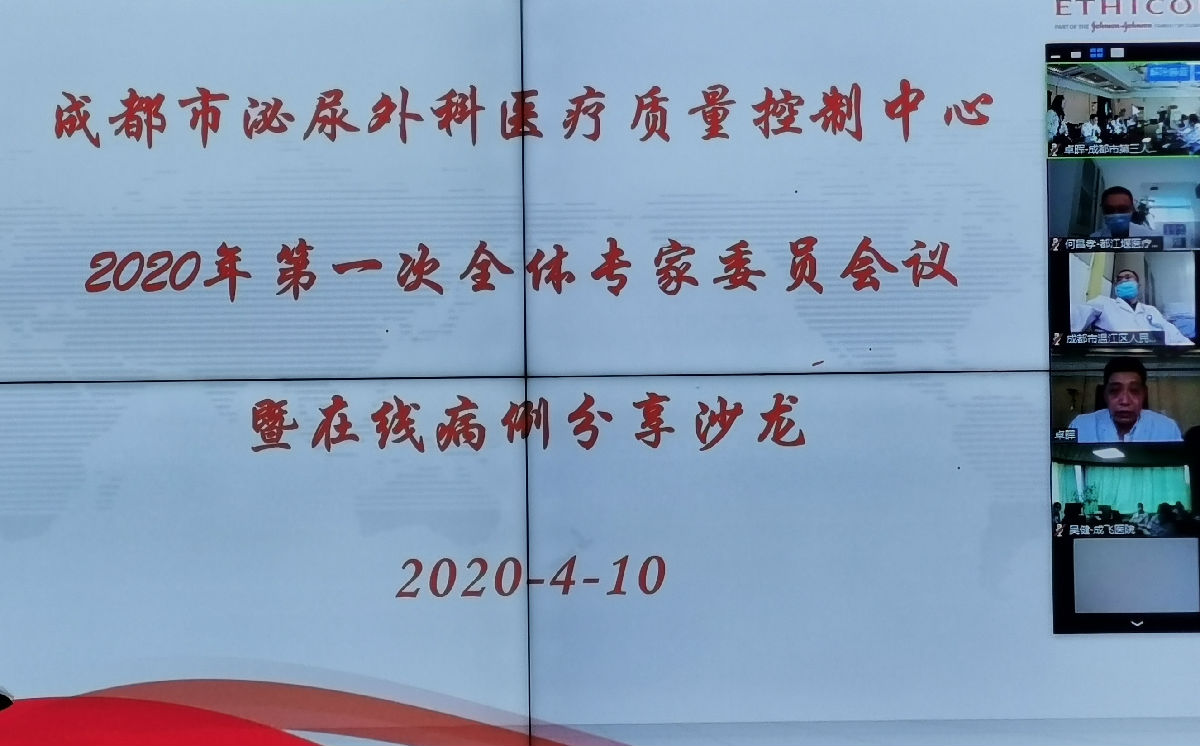 ETHICO
PART OF THE Johnson & Johnson
成都市泌尿外科医疗质量控制中心
2020年第一次全体专家委员会议
暨在线病例分享沙龙
2020-4-10
卓晖-成都市第三人...
何昌孝-都江堰医疗...
成都市温江区人民...
卓晖
吴健-成飞医院